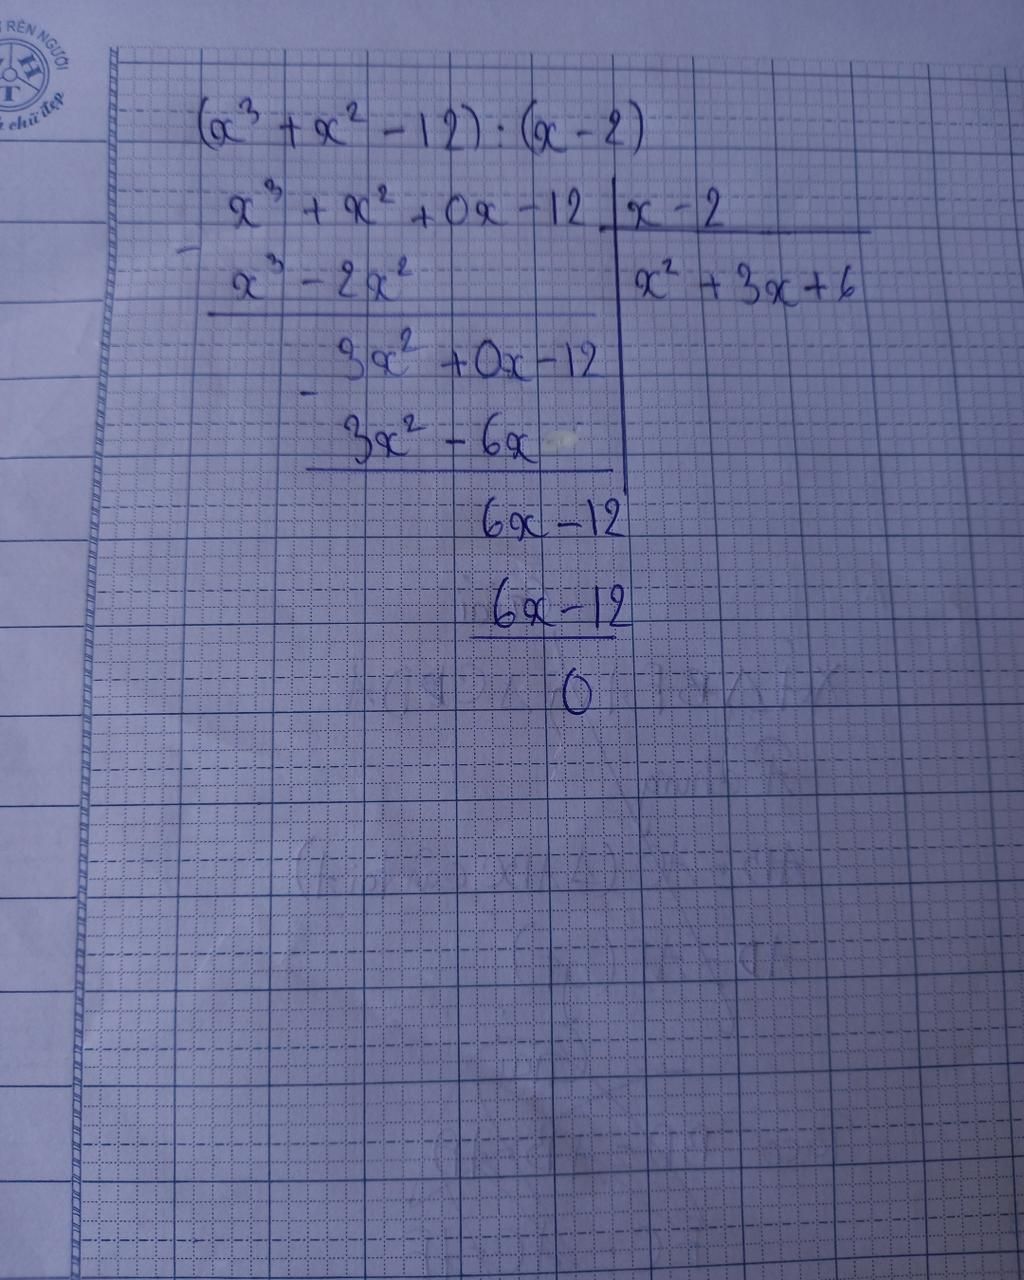 RÈN NGƯỜI
H
T
chữ đẹp
(x³ + x² - 12) : (x - 2)
x³ + x² + 0x - 12 | x - 2
-
x³ - 2x² | x² + 3x + 6
3x² + 0x - 12
-
3x² - 6x
6x - 12
6x - 12
0